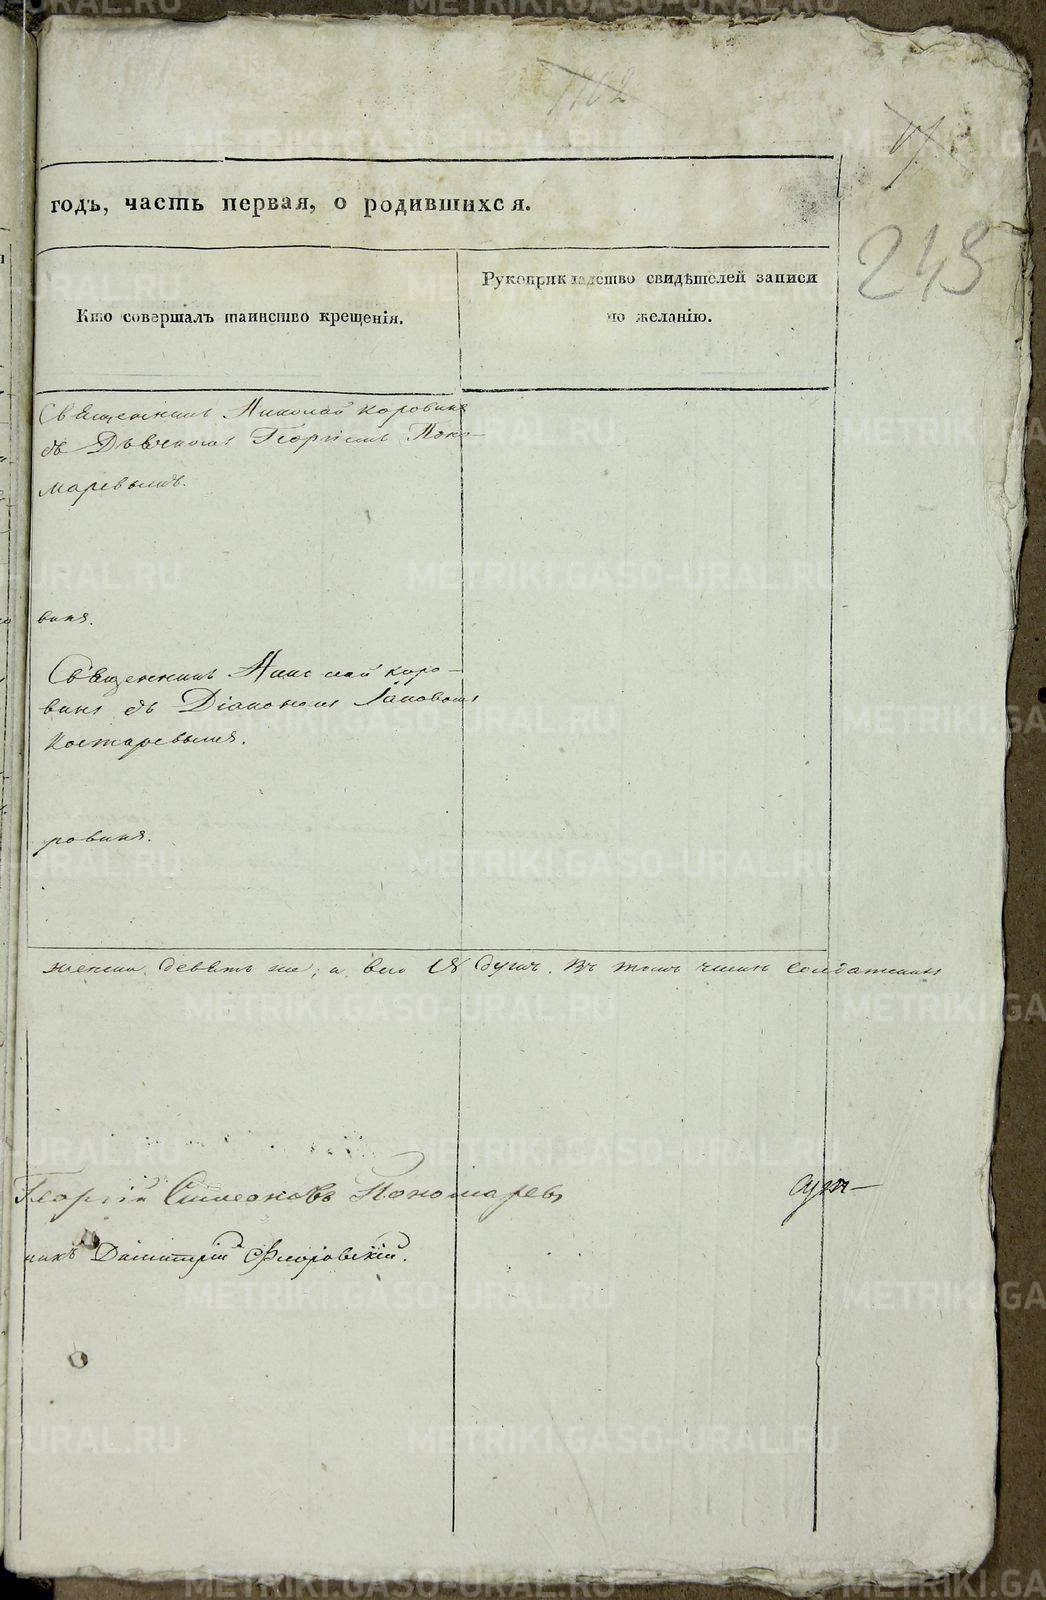 1102
годъ, часть первая, о родившихся.
248
Кто совершалъ таинство крещенія.
Рукоприкладство свидѣтелей записи
по желанію.
Священникъ Николай Коровинъ
съ Дьячкомъ Георгіемъ Поно-
маревымъ.
винъ.
Священникъ Николай Коро-
винъ съ Діакономъ Іаковомъ
Костаревымъ.
ровинъ.
женска девять же, а всего 18 душъ. Въ томъ числѣ солдатскихъ
Георгій Симеоновъ Пономаревъ
никъ Димитрій Флоровскій.
METRIKI.GASO-URAL.RU